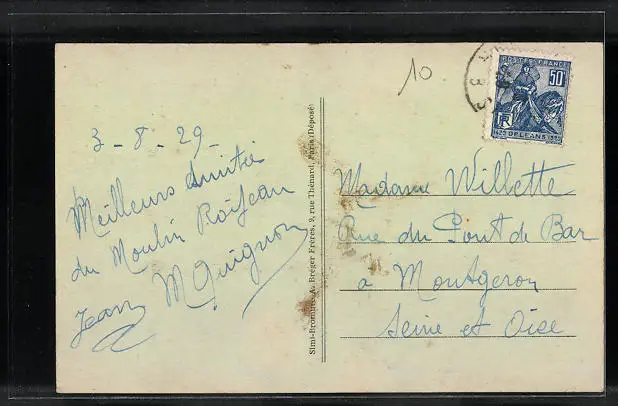 10
3 - 8 - 29 -
Meilleurs Amitié
du Moulin
M Guignon
Jean
Simi-Bromure A. Bréger Frères, 9, rue Thénard, Paris (Déposé)
POSTES FRANCE
50c
RF
1429 ORLEANS 1929
Madame Willette
Rue du Pont de Bar
à Montgeron
Seine et Oise